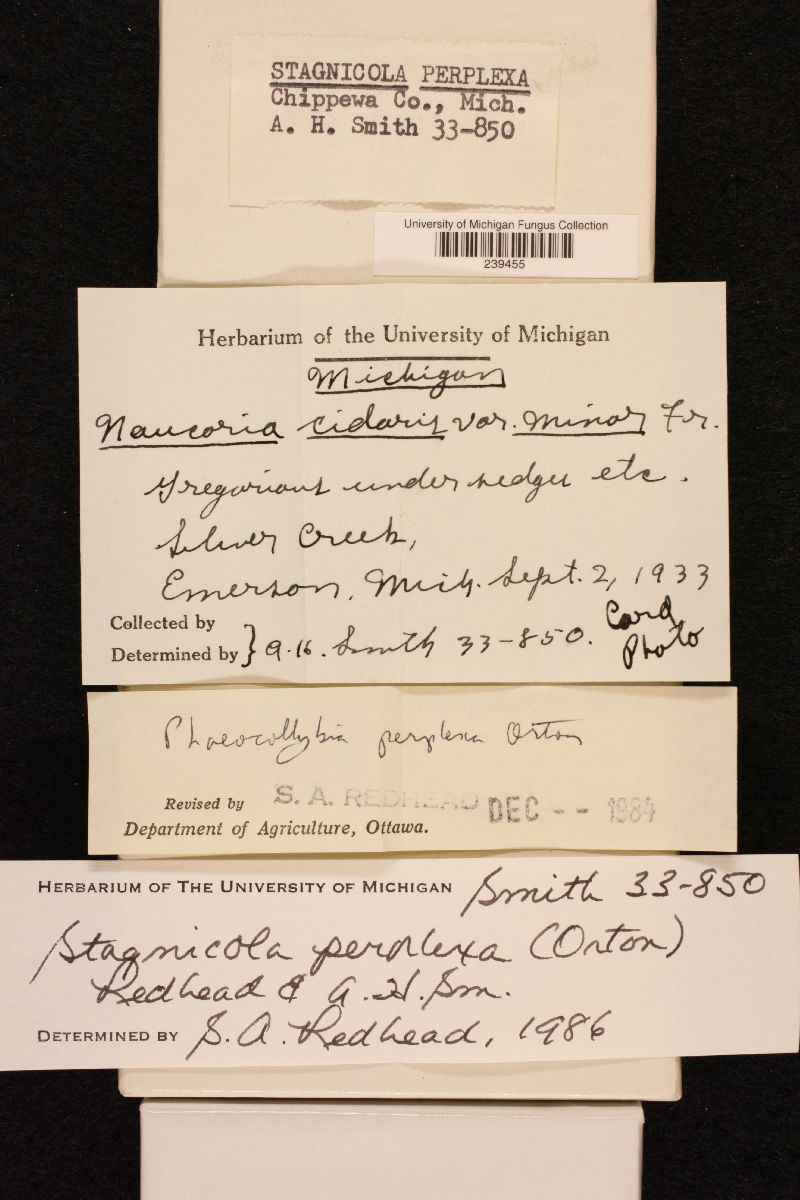 STAGNICOLA PERPLEXA
Chippewa Co., Mich.
A. H. Smith 33-850
University of Michigan Fungus Collection
239455
Herbarium of the University of Michigan
Michigan
Naucoria cidaris var. minor Fr.
Gregarious under sedges etc.
Silver Creek,
Emerson, Mich. Sept. 2, 1933
Collected by
Determined by } A. H. Smith 33-850.
Card
Photo
Phaeocollybia perplexa Orton
Revised by S. A. REDHEAD DEC -- 1984
Department of Agriculture, Ottawa.
HERBARIUM OF THE UNIVERSITY OF MICHIGAN Smith 33-850
Stagnicola perplexa (Orton)
Redhead & A. H. Sm.
DETERMINED BY S. A. Redhead, 1986